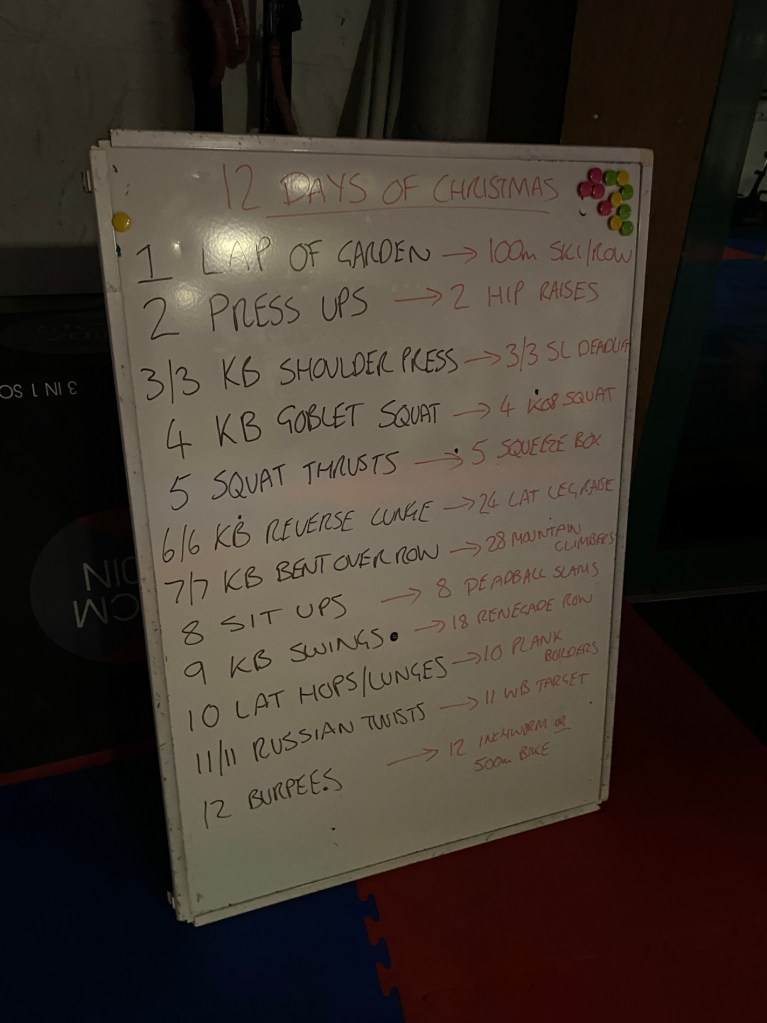 12 DAYS OF CHRISTMAS
1 LAP OF GARDEN → 100m SKI/ROW
2 PRESS UPS → 2 HIP RAISES
3/3 KB SHOULDER PRESS → 3/3 SL DEADLIFT
4 KB GOBLET SQUAT → 4 SQUAT
5 SQUAT THRUSTS → 5 SQUEEZE BOX
6/6 KB REVERSE LUNGE → 24 LAT LEG RAISE
7/7 KB BENT OVER ROW → 28 MOUNTAIN
CLIMBERS
8 SIT UPS → 8 DEADBALL SLAMS
9 KB SWINGS → 18 RENEGADE ROW
10 LAT HOPS/LUNGES → 10 PLANK
BUILDERS
11/11 RUSSIAN TWISTS → 11 WB TARGET
12 BURPEES → 12 INCHWORM or
500m BIKE
3 IN 1 SO